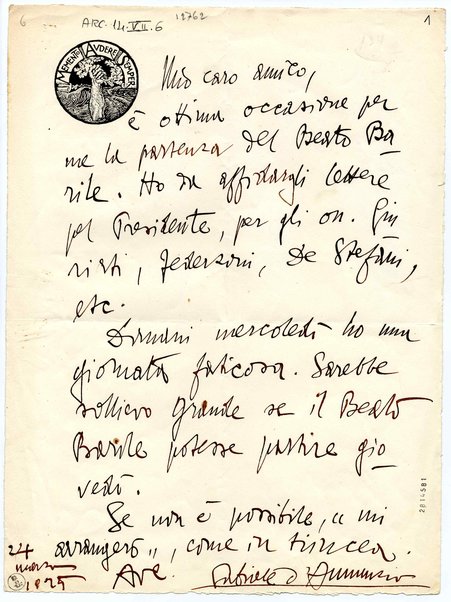 6
12762
ARC. 14. VII. 6
1
MEMENTO AUDERE SEMPER
Mio caro amico,
è ottima occasione per
me la partenza del Beato Ba-
rile. Ho da affidargli lettere
pel Presidente, per gli on. Giu-
riati, Federzoni, De Stefani,
etc.
Domani mercoledì ho una
giornata faticosa. Sarebbe
sollievo grande se il Beato
Barile potesse partire gio-
vedì.
Se non è possibile, "mi
arrangerò", come in trincea.
Ave.
Gabriele d'Annunzio
24
marzo
1925
2814581